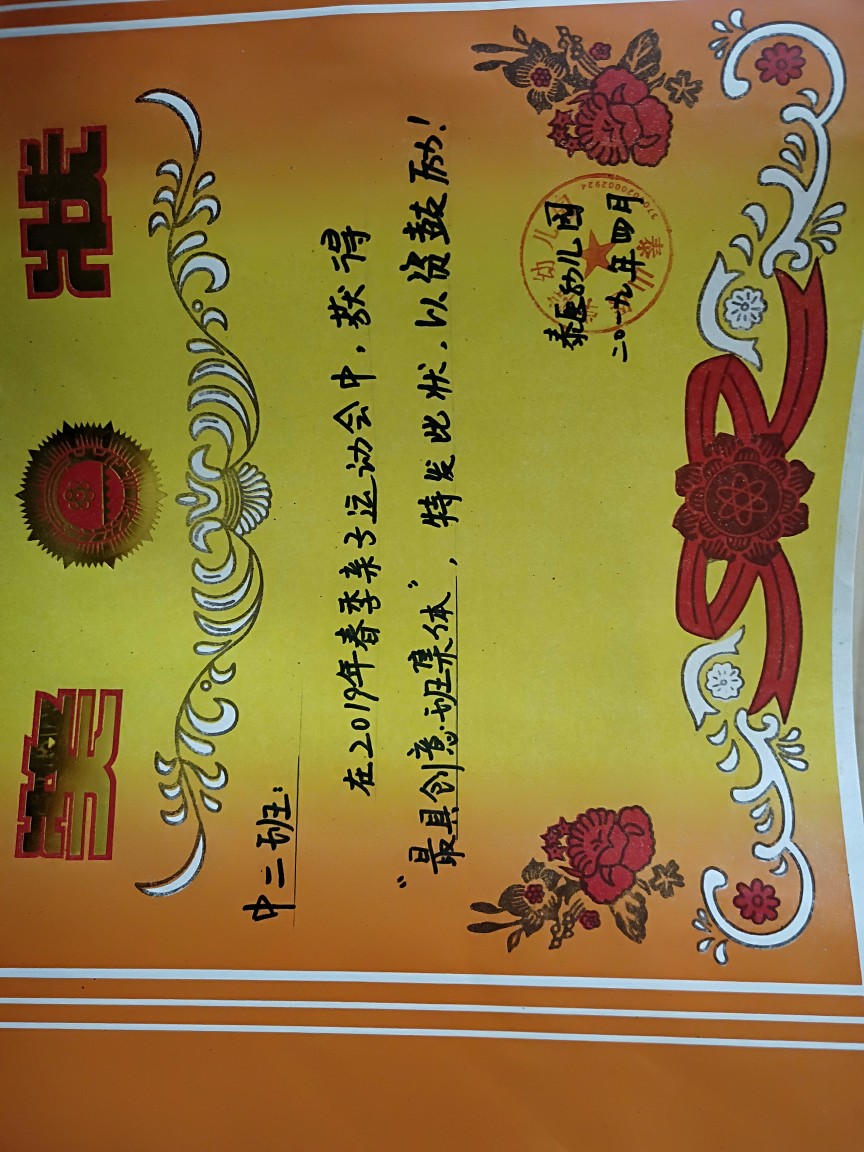 奖状
中二班：
在2019年春季亲子运动会中，获得
“最具创意班集体”，特发此状，以资鼓励！
泰医幼儿园
二〇一九年四月
幼儿
3709020002924